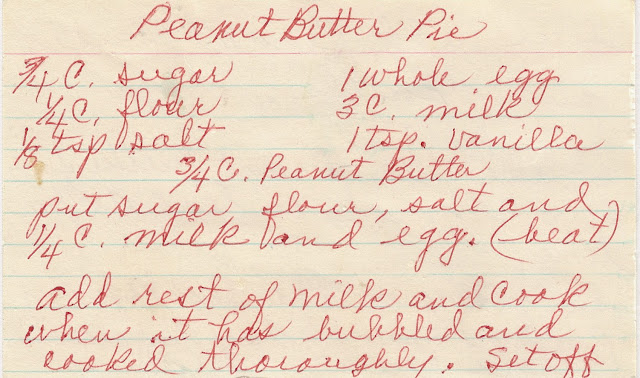 Peanut Butter Pie
3/4 C. sugar 1 whole egg
1/4 C. flour 3 C. milk
1/8 tsp salt 1 tsp. vanilla
3/4 C. Peanut Butter
put sugar flour, salt and
1/4 C. milk and egg. (beat)
add rest of milk and cook
when it has bubbled and
cooked thoroughly. Set off